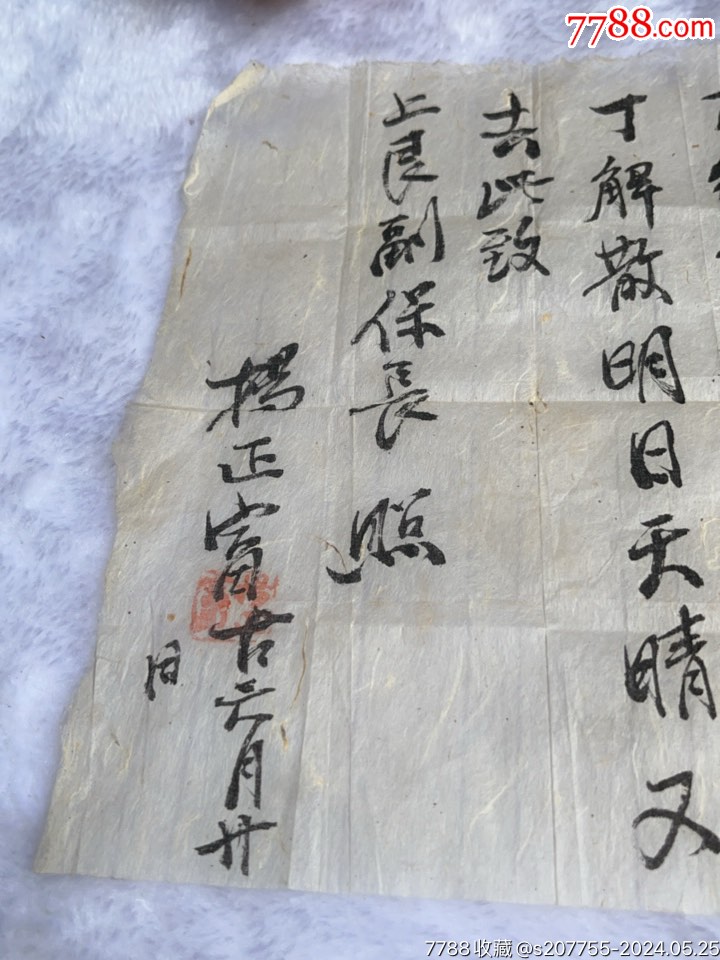 7788.com
丁解散明日天晴又
去此致
上良副保長 照
楊正富古六月廿
日
7788收藏@s207755-2024.05.25